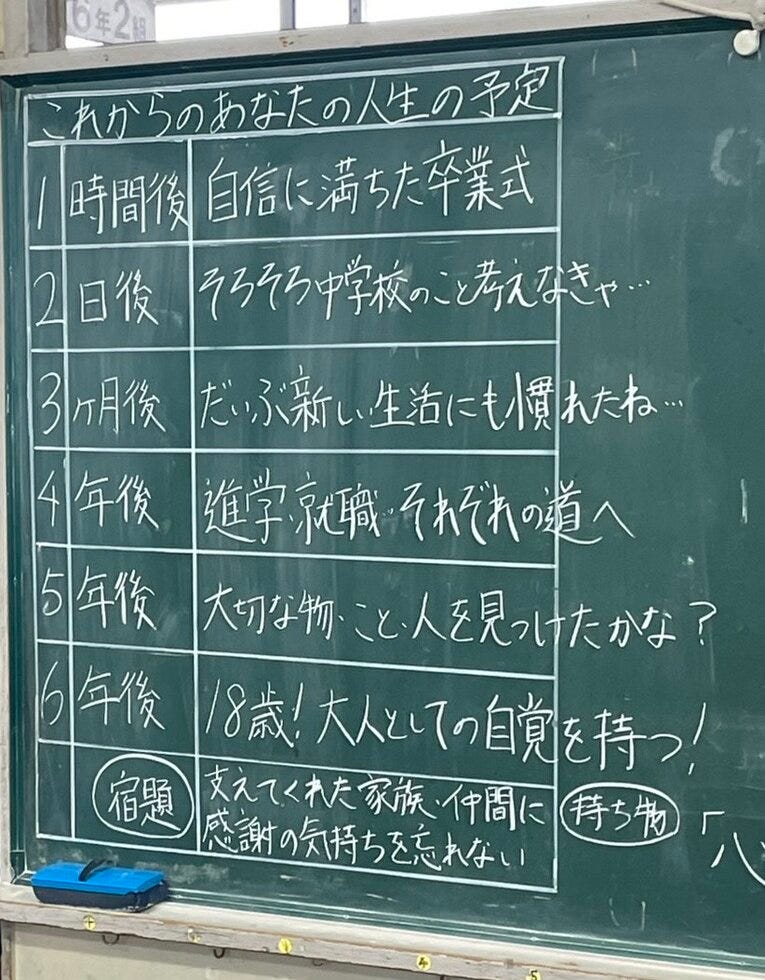 6年2組
これからのあなたの人生の予定
1 時間後 自信に満ちた卒業式
2 日後 そろそろ中学校のこと考えなきゃ…
3 ヶ月後 だいぶ新しい生活にも慣れたね…
4 年後 進学・就職・それぞれの道へ
5 年後 大切な物・こと・人を見つけたかな？
6 年後 18歳！大人としての自覚を持つ！
宿題 支えてくれた家族・仲間に
感謝の気持ちを忘れない
持ち物 「心
4
5